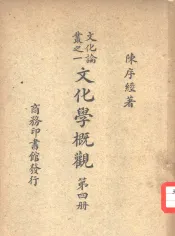 陳序經著
文化論
叢之一
文化學概觀
第四册
商務印書館發行